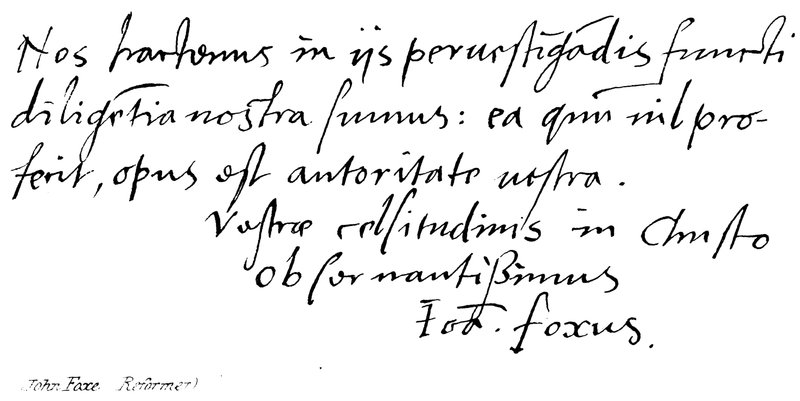 Nos hactenus in ijs peruestigādis functi
diligētia nostra sumus: ea quū nil pro-
ferit, opus est autoritate uestra.
Vestræ celsitudinis in Christo
obseruantißimus
Ioā. foxus.
John Foxe Reformer)